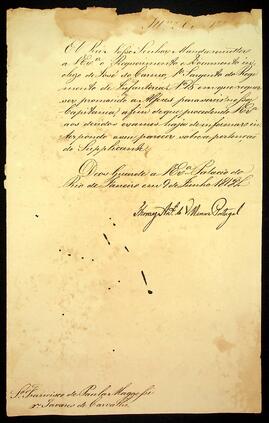 Ill.mo Ex.mo Sr.
El Rei Nosso Senhor Manda remetter
a VEx.a o Requerimento e Documento in
cluso de José do Carmo, 1º Sargento do Regi
mento de Infantaria Nº 15 em que requer
ser promovido a Alferes para
Capitania, a fim de que procedendo VEx.a
aos devidos exames haja de informar in
terpondo o seu parecer sobre a pertenção
do Supplicante.
Deos Guarde a VEx.a Palacio do
Rio de Janeiro em 9 de Junho
Thomaz Ant.o de Villanova Portugal
Sr. Francisco de Paula Magessi
Tavares de Carvalho.